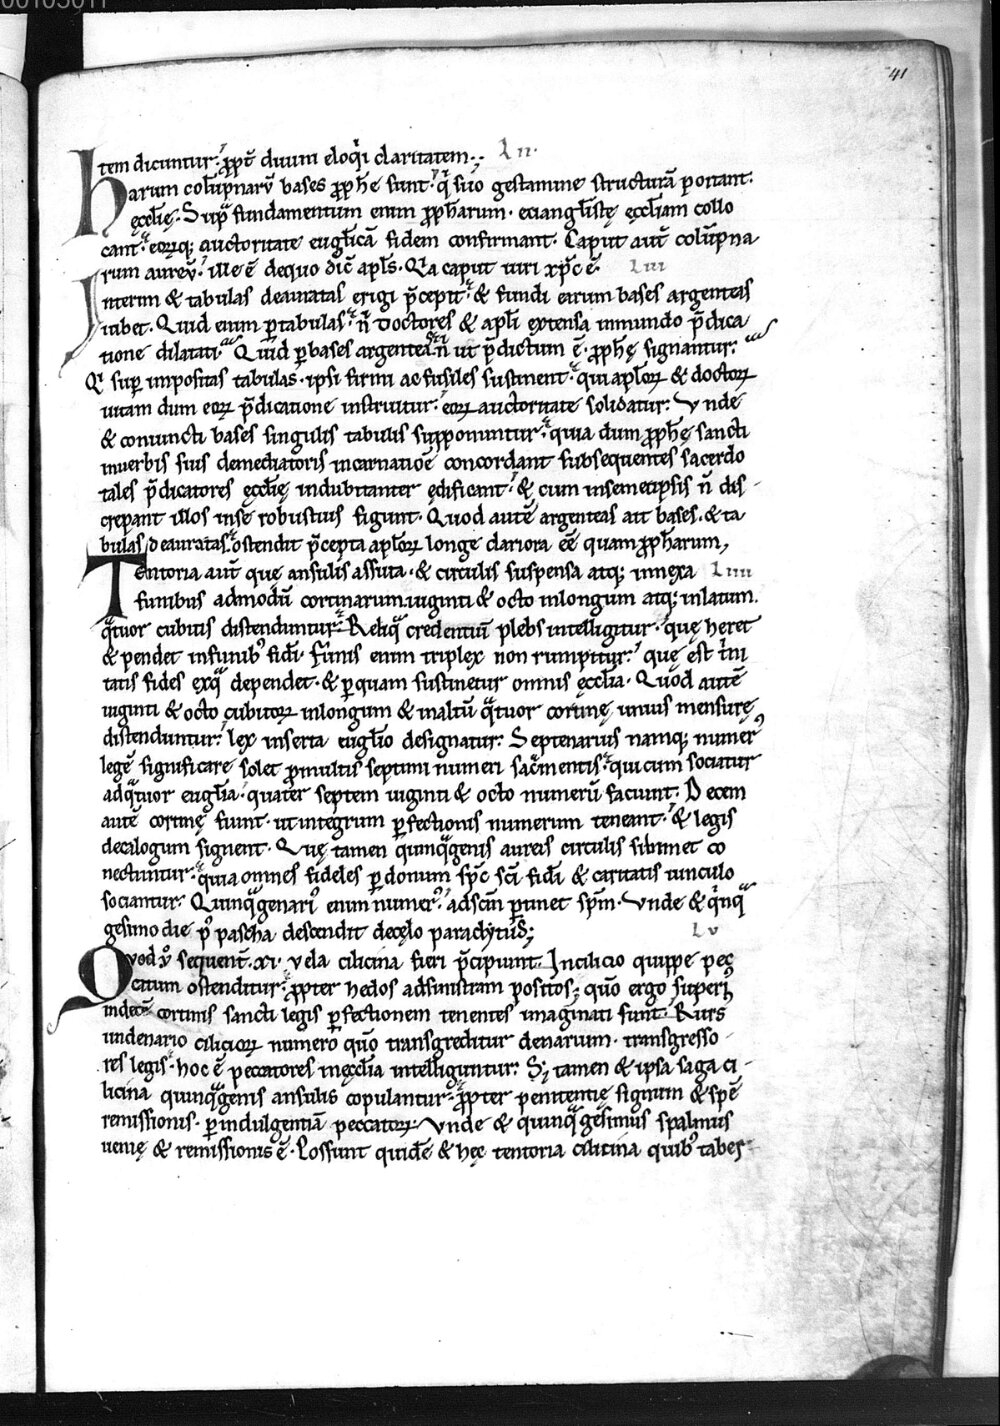 00103011
41
Item dicuntur. ꝓpt̄ diuini eloq̇i claritatem. Lii.
harum colūpnarū bases ꝓph̄e sunt. q̇ suo gestamine structurā portant
ęcclię. Sup̄ fundamentum enim ꝓph̄arum. euanglistę ęccl̄iam collo
cant. eorūq; auctoritate eugl̄icā fidem confirmant. Caput aut̄ colūpna
rum aureū. ille ē dequo dic̄ apl̄s. Q̄a caput uiri xp̄c ē. Liii
Interim & tabulas deauratas erigi p̄cepit. & fundi earum bases argenteas
iubet. Quid enim ꝑtabulas. n̄ doctores & apl̄i extensa inmundo p̄dica
tione dilatati. Quid ꝑbases argenteas. n̄ ut p̄dictum ē. ꝓph̄ę signantur.
Q̄ sup̄ impositas tabulas. ipsi firmi ac fusiles sustinent. qui apl̄oꝝ & doctoꝝ
uitam dum eoꝝ p̄dicatione instruitur. eoꝝ auctoritate solidatur. Vnde
& coniuncti bases singulis tabulis supponuntur. quia dum ꝓph̄ę sancti
inuerbis suis demediatoris incarnatiōe concordant subsequentes sacerdo
tales p̄dicatores ęcclię indubitanter ędificant. & cum insemetipsis n̄ dis-
crepant illos inse robustius figunt. Quod autē argenteas ait bases. & ta
bulas deauratas. ostendit p̄cepta apl̄oꝝ longe clariora eē quam ꝓph̄arum,
Tentoria aut̄ quę ansulis assuta. & circulis suspensa atq; innexa Liiii
funibus admodū cortinarum. uiginti & octo inlongum atq; inlatum.
q̄tuor cubitis distenduntur. Reliq̄ credentiū plebs intelligitur. quę heret
& pendet infunib; fidi. Funis enim triplex non rumpitur. quę est t̄ni
tatis fides exq̄ dependet. & ꝑquam sustinetur omnis ęccl̄ia. Quod autē
uiginti & octo cubitoꝝ inlongum & inaltū q̄tuor cortinę unius mensurę
distenduntur. lex inserta eugl̄io designatur. Septenarius namq; numer᷒
legē significare solet ꝑmultis septimi numeri sac̄mentis. qui cum sociatur
adq̄tuor eugl̄ia. quater septem uiginti & octo numerū faciunt. Decem
autē cortinę fiunt. ut integrum ꝑfectionis numerum teneant. & legis
decalogum signent. Quę tamen quinq̄genis aureis circulis sibimet co
nectuntur. quia omnes fideles ꝑ donum sp̄c sc̄i fidi & caritatis uinculo
sociantur. Quinq̄genari᷒ enim numer᷒. adsc̄m ꝑtinet sp̄m. Vnde & q̇nq̄
gesimo die p᷒ pascha descendit decęlo paraclytus; Lv
Quod v̊ sequent̄. xi. vela cilicina fieri p̄cipiunt. Incilicio quippe pec
catum ostenditur. ꝓpter hedos adsinistram positos; quō ergo superi᷒
indecē cortinis sancti legis ꝑfectionem tenentes imaginati sunt. Rurs
undenario cilicioꝝ numero quō transgreditur denarium. transgresso-
res legis. hoc ē peccatores inęccl̄ia intelliguntur. S; tamen & ipsa saga ci-
licina quinq̄genis ansulis copulantur. ꝓpter penitentię signum & spē
remissionis. ꝑindulgentiā peccatoꝝ. Vnde & quinq̄gesimus spalmus
uenię & remissionis ē. Possunt quidē & hęc tentoria cilicina quib; tabes-